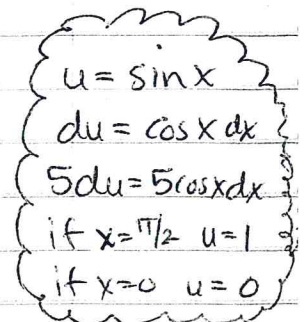 u = sinx
du = cosx dx
5du = 5cosxdx
if x=π/2 u=1
if x=0 u=0